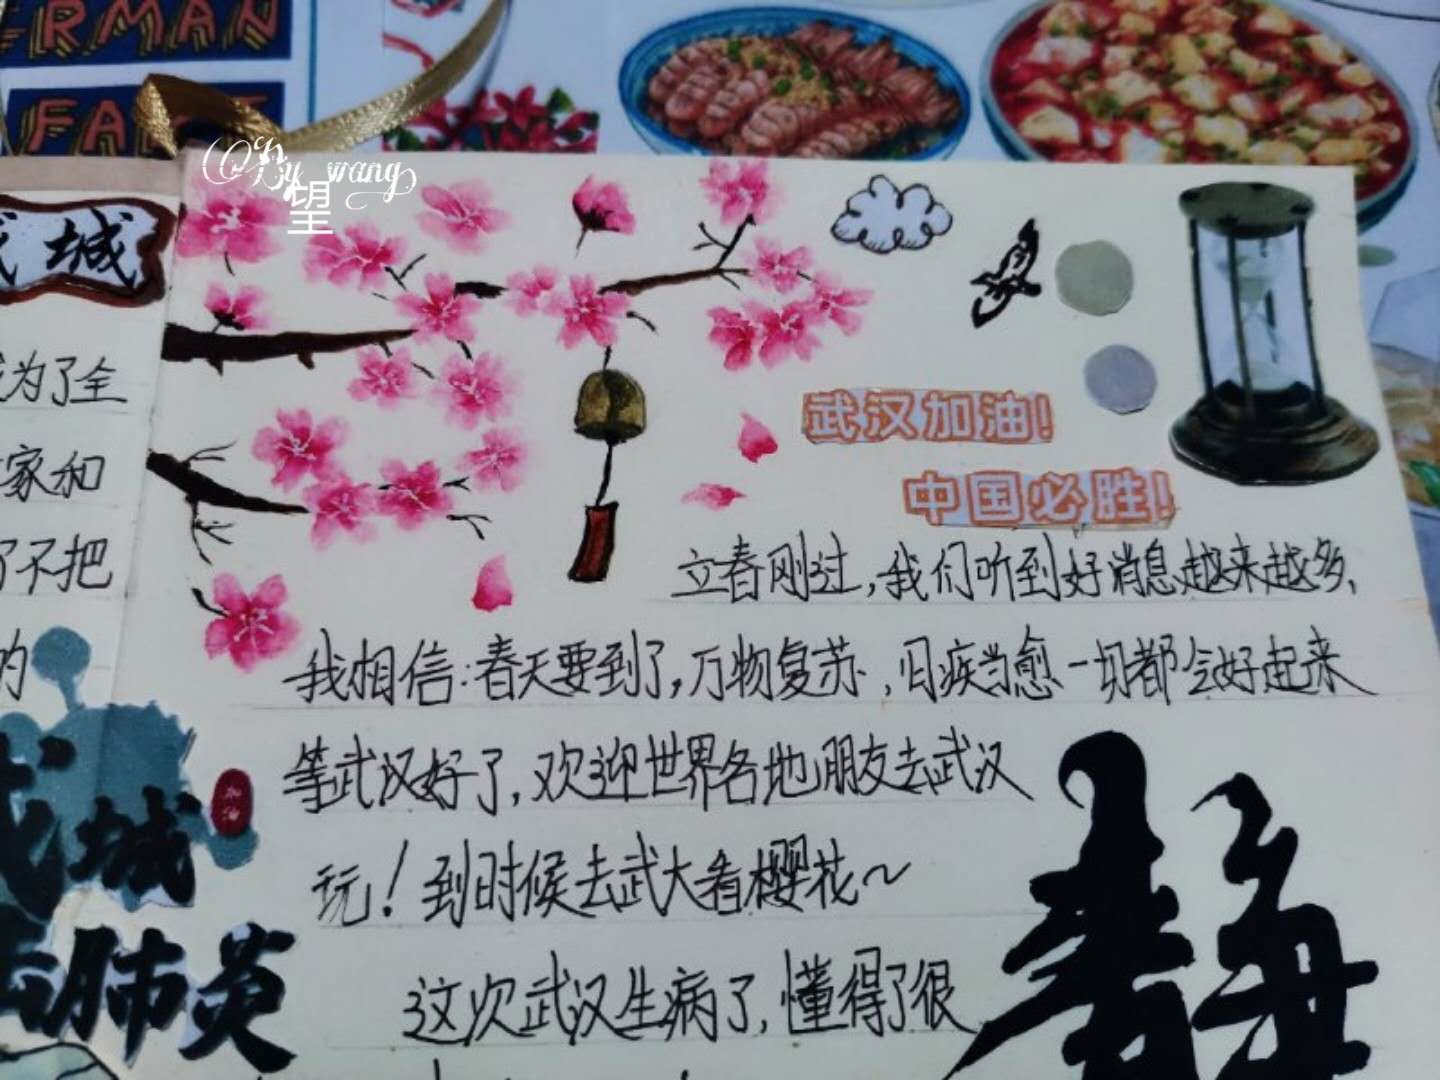 ERMAN
FA
By wang
望
城
为了全
家和
了不把
的
城
加油
肺炎
武汉加油!
中国必胜!
立春刚过,我们听到好消息越来越多、
我相信:春天要到了,万物复苏,旧疾当愈一切都会好起来
等武汉好了,欢迎世界各地朋友去武汉
玩!到时候去武大看樱花~
这次武汉生病了,懂得了很